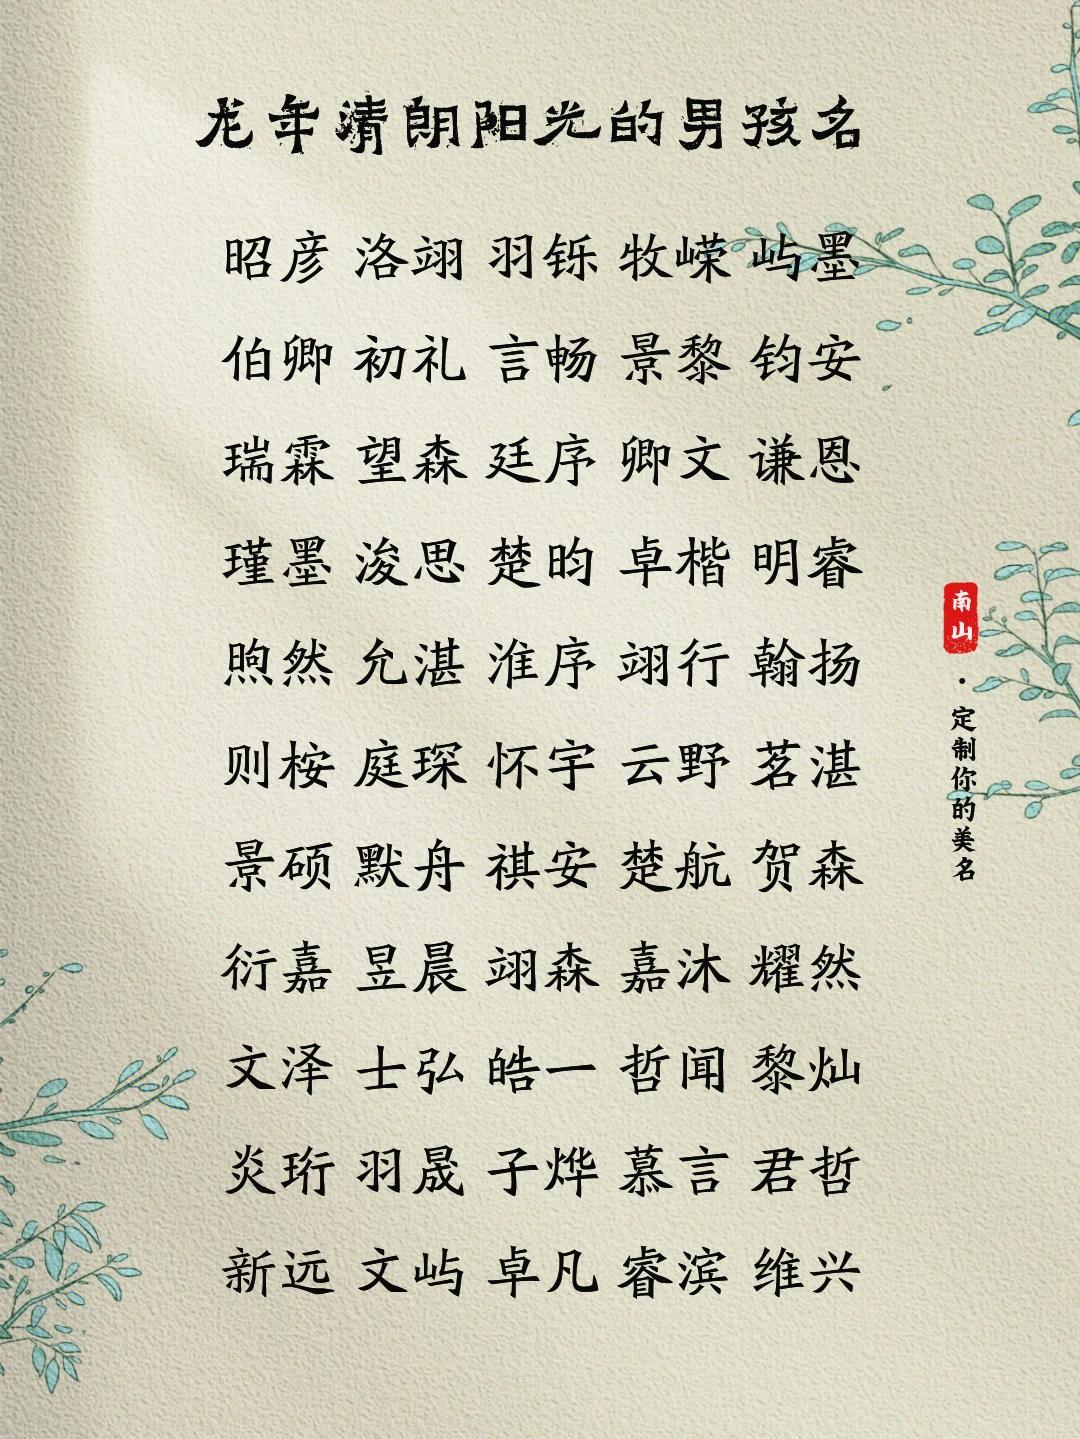 龙年清朗阳光的男孩名
昭彦 洛翊 羽铄 牧嵘 屿墨
伯卿 初礼 言畅 景黎 钧安
瑞霖 望森 廷序 卿文 谦恩
瑾墨 浚思 楚昀 卓楷 明睿
煦然 允湛 淮序 翊行 翰扬
则桉 庭琛 怀宇 云野 茗湛
景硕 默舟 祺安 楚航 贺森
衍嘉 昱晨 翊森 嘉沐 耀然
文泽 士弘 皓一 哲闻 黎灿
炎珩 羽晟 子烨 慕言 君哲
新远 文屿 卓凡 睿滨 维兴
南山
·定制你的美名